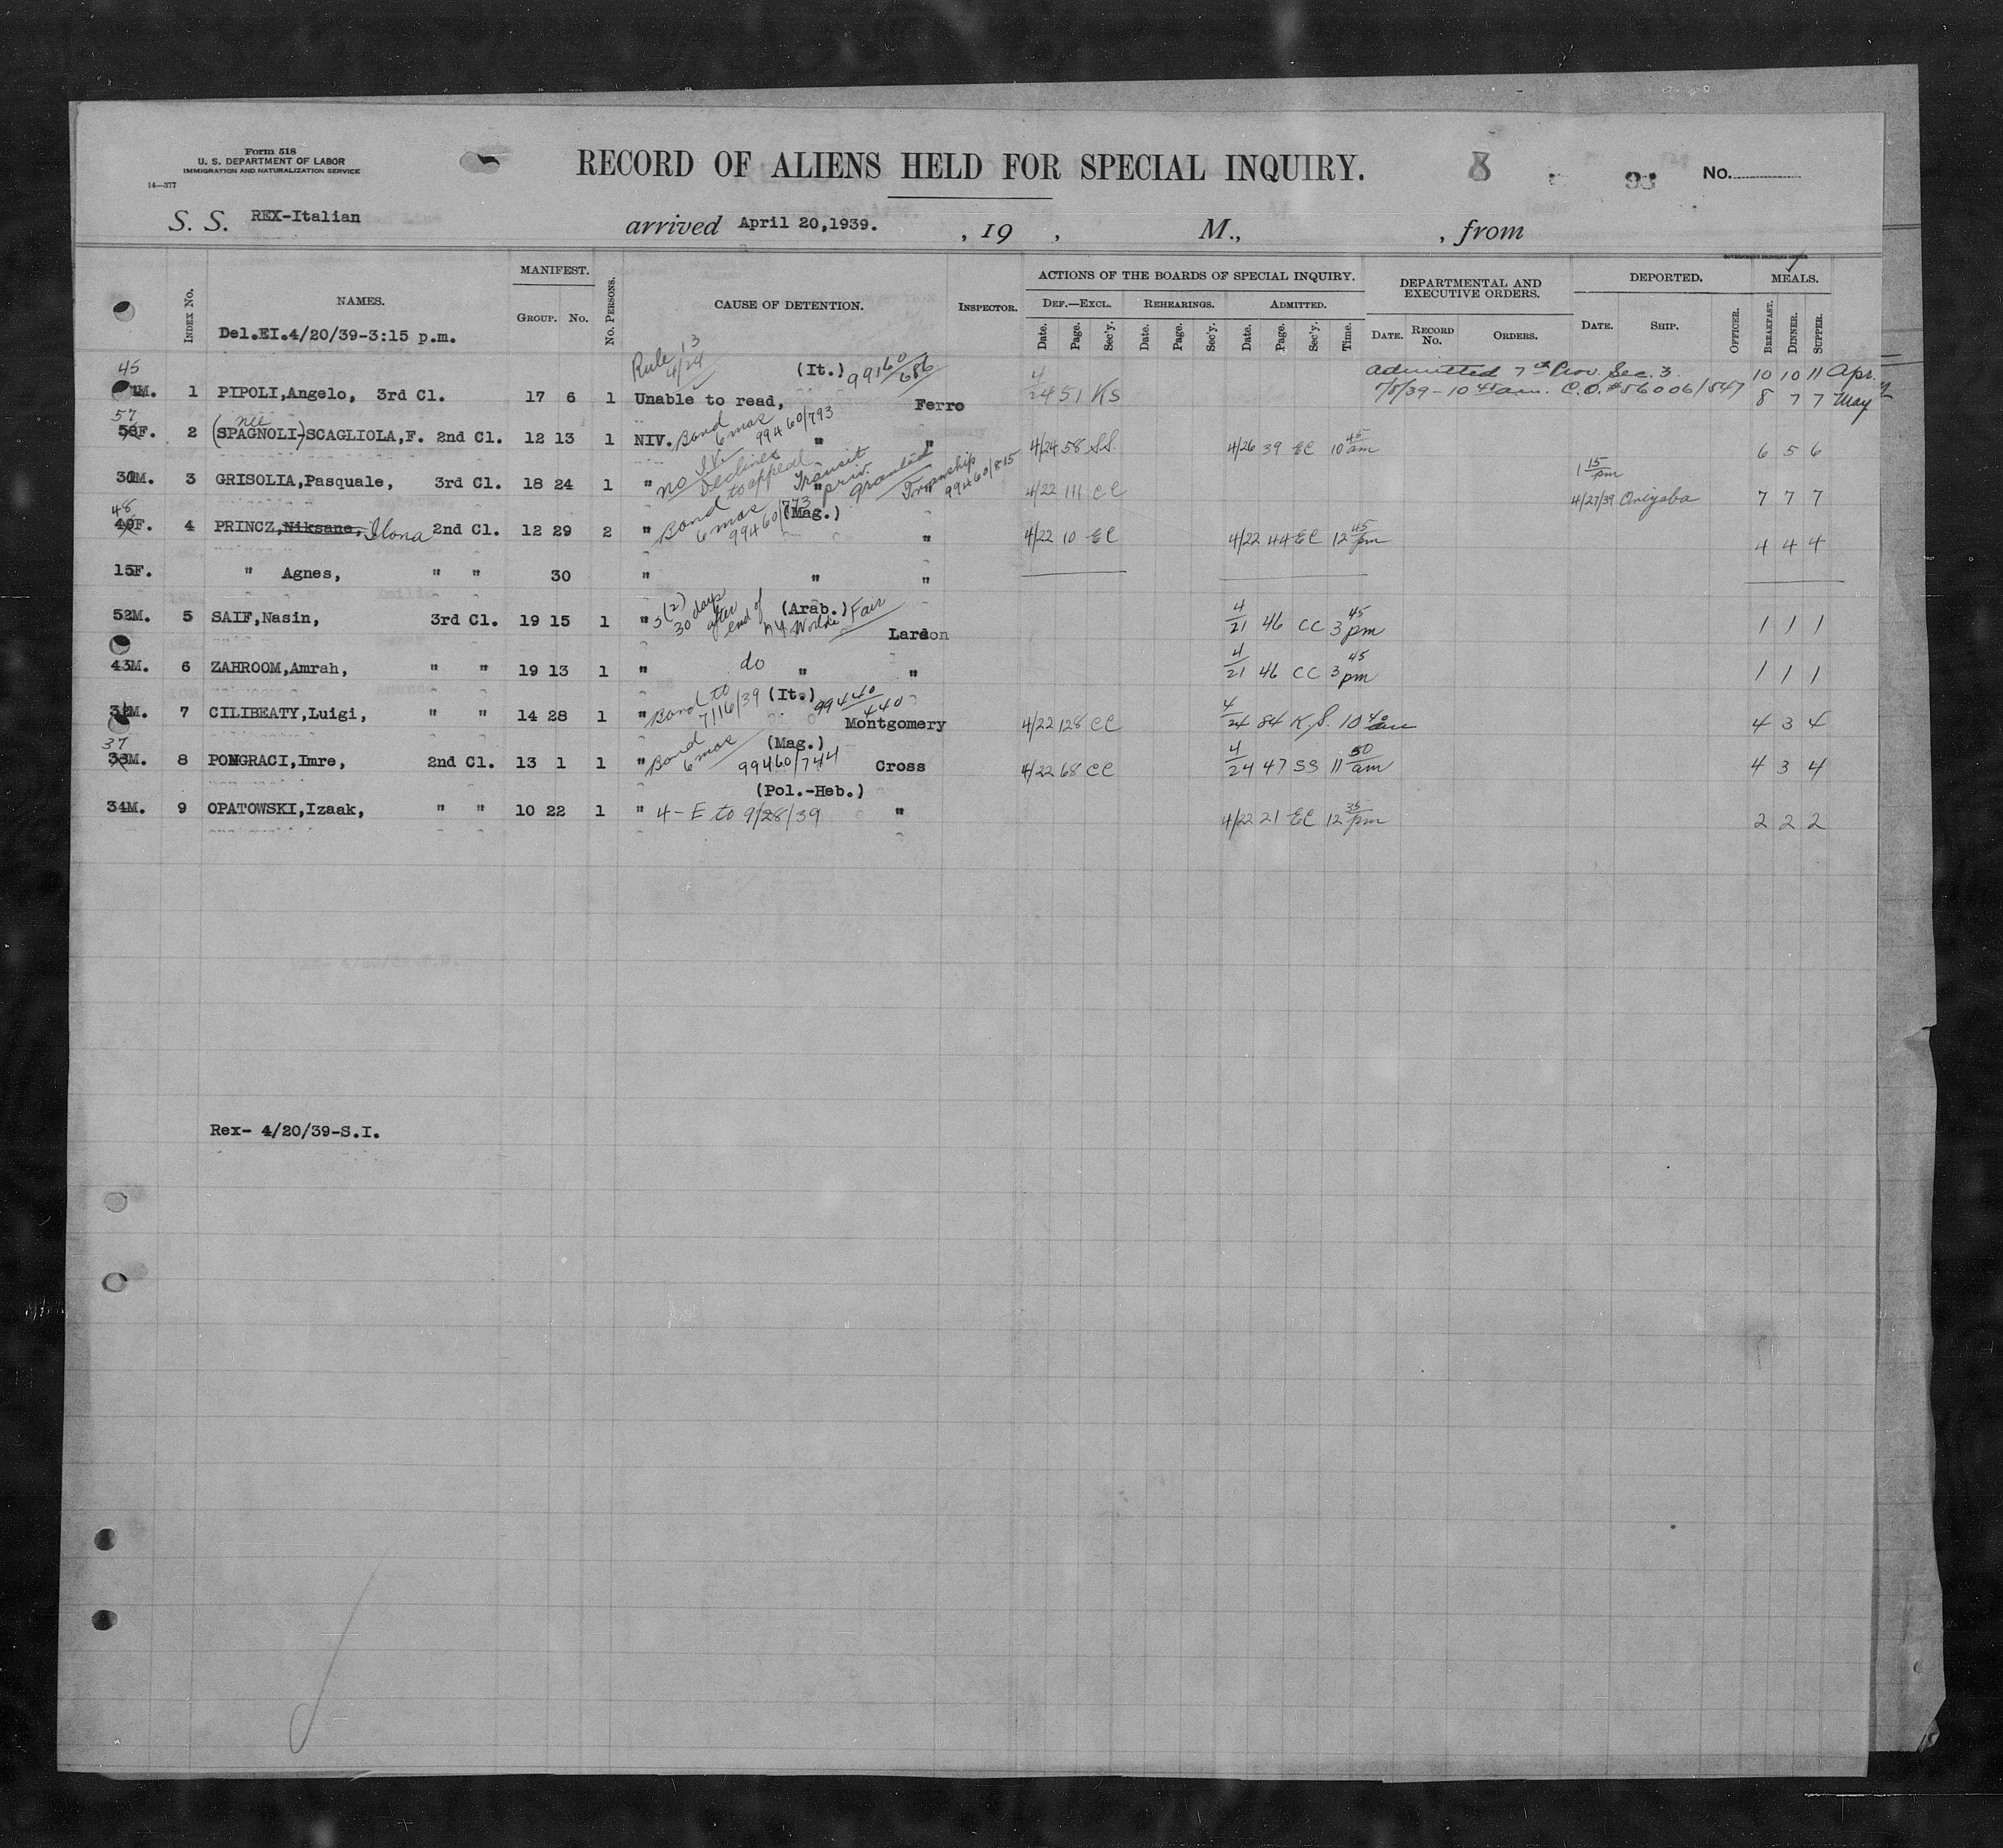 Form 518
U. S. DEPARTMENT OF LABOR
IMMIGRATION AND NATURALIZATION SERVICE
14—377
RECORD OF ALIENS HELD FOR SPECIAL INQUIRY.
8 93 No.
S. S. REX-Italian arrived April 20,1939. , 19 , M., , from
GOVERNMENT PRINTING OFFICE
INDEX No. NAMES. MANIFEST. GROUP. No. No. PERSONS. CAUSE OF DETENTION. INSPECTOR. ACTIONS OF THE BOARDS OF SPECIAL INQUIRY. DEPARTMENTAL AND EXECUTIVE ORDERS. DEPORTED. MEALS.
DEF.—EXCL. REHEARINGS. ADMITTED.
Date. Page. Sec'y. Date. Page. Sec'y. Date. Page. Sec'y. Time. DATE. RECORD No. ORDERS. DATE. SHIP. OFFICER. BREAKFAST. DINNER. SUPPER.
Del.EI.4/20/39-3:15 p.m.
Rule 13 4/24 (It.) 99160/686 admitted 7th Prov. Sec. 3. 10 10 11 Apr.
45 M. 1 PIPOLI,Angelo, 3rd Cl. 17 6 1 Unable to read, Ferro 4/24 51 KS 5/8/39-10 45 am. C.O.#56006/547 8 7 7 May
57 58F. 2 (SPAGNOLI-) nee SCAGLIOLA,F. 2nd Cl. 12 13 1 NIV. Bond 6 mos 99460/793 " " 4/24 58 SS. 4/26 39 EC 10 45 am 6 5 6
30M. 3 GRISOLIA,Pasquale, 3rd Cl. 18 24 1 " no IV Declines to appeal Transit priv. granted Transhp 99460/815 " " 4/22 111 CC 1 15 pm 4/27/39 Orizaba 7 7 7
48 49F. 4 PRINCZ,Niksane, Ilona 2nd Cl. 12 29 2 " Bond 6 mos 99460/773 (Mag.) " 4/22 10 EC 4/22 44 EC 12 45 pm 4 4 4
15F. " Agnes, " " 30 " " "
52M. 5 SAIF,Nasin, 3rd Cl. 19 15 1 " 3(2) 30 days after end of NY Worlds Fair (Arab.) Lardon 4/21 46 CC 3 45 pm 1 1 1
43M. 6 ZAHROOM,Amrah, " " 19 13 1 " do " " 4/21 46 CC 3 45 pm 1 1 1
M. 7 CILIBEATY,Luigi, " " 14 28 1 " Bond to 7/16/39 (It.) 99440/440 Montgomery 4/22 128 CC 4/24 84 K.S. 10 40 am 4 3 4
37 38M. 8 PONGRACI,Imre, 2nd Cl. 13 1 1 " Bond 6 mos (Mag.) 99460/744 Cross 4/22 68 CC 4/24 47 SS 11 50 am 4 3 4
34M. 9 OPATOWSKI,Izaak, " " 10 22 1 " 4-E to 9/28/39 (Pol.-Heb.) " 4/22 21 EC 12 35 pm 2 2 2
Rex- 4/20/39-S.I.